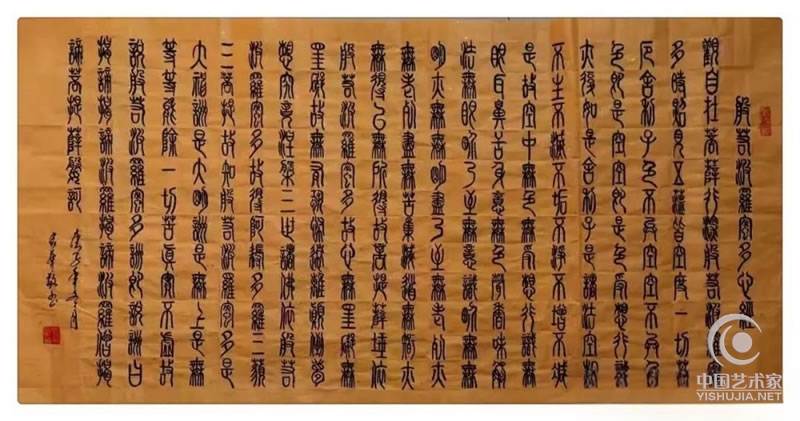 般若波羅蜜多心經
觀自在菩薩行深般若波羅蜜
多時照見五蘊皆空度一切苦
厄舍利子色不異空空不異色
色即是空空即是色受想行識
亦復如是舍利子是諸法空相
不生不滅不垢不淨不增不減
是故空中無色無受想行識無
眼耳鼻舌身意無色聲香味觸
法無眼界乃至無意識界無無
明亦無無明盡乃至無老死亦
無老死盡無苦集滅道無智亦
無得以無所得故菩提薩埵依
般若波羅蜜多故心無罣礙無
罣礙故無有恐怖遠離顛倒夢
想究竟涅槃三世諸佛依般若
波羅蜜多故得阿耨多羅三藐
三菩提故知般若波羅蜜多是
大神詶是大明詶是無上是無
等等能除一切苦真實不虛故
說般若波羅蜜多詶即說詶曰
揭諦揭諦波羅揭諦波羅僧揭
諦菩提薩婆訶
中国艺术家
YISHUJIA.NET